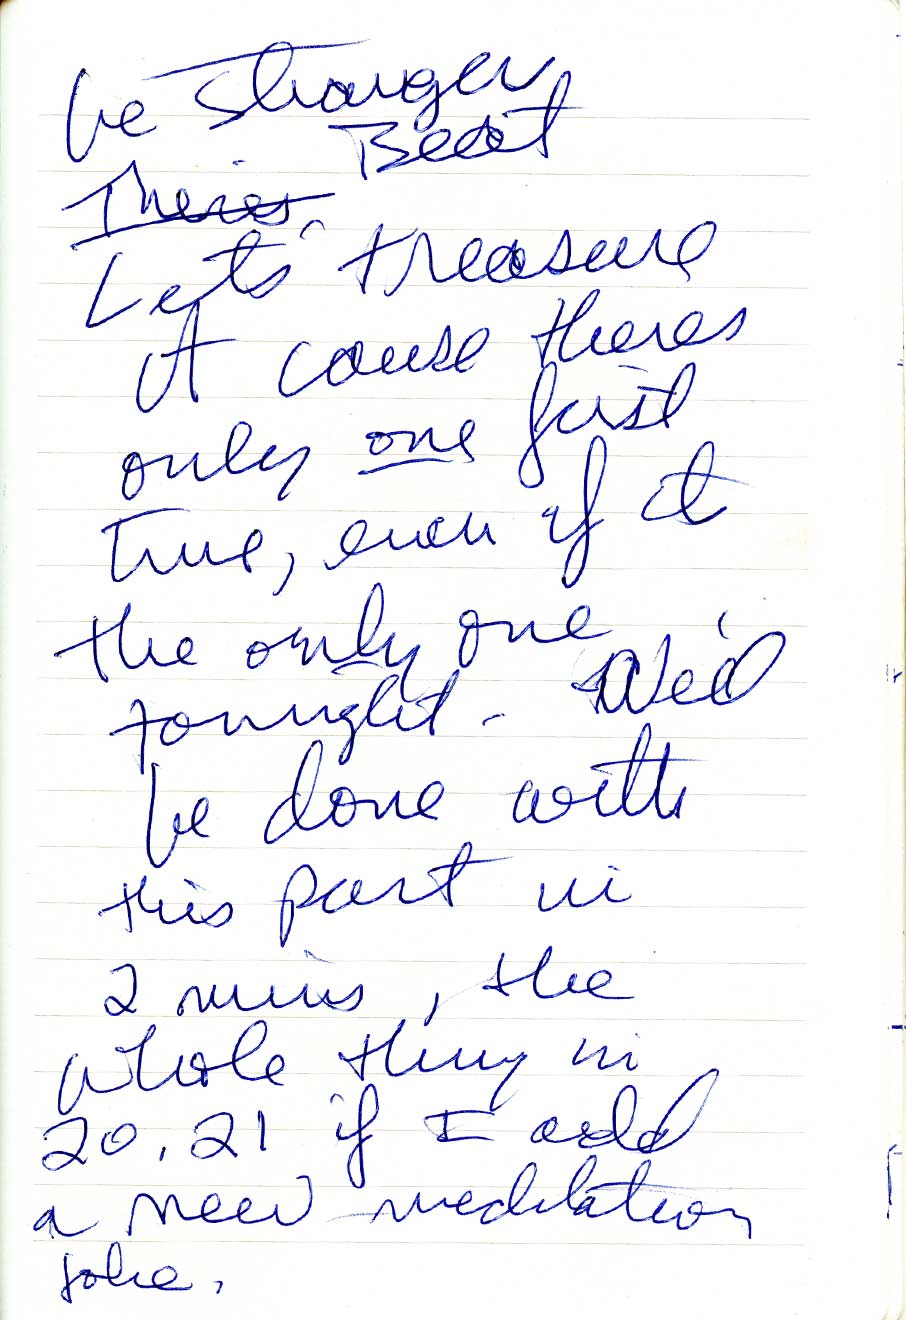 be stranger
Beat
Theres
Let's treasure
it cause theres
only one first
time, even if it
the only one
tonight. We'd
be done with
this part in
2 mins, the
whole thing in
20, 21 if I add
a new meditation
joke.